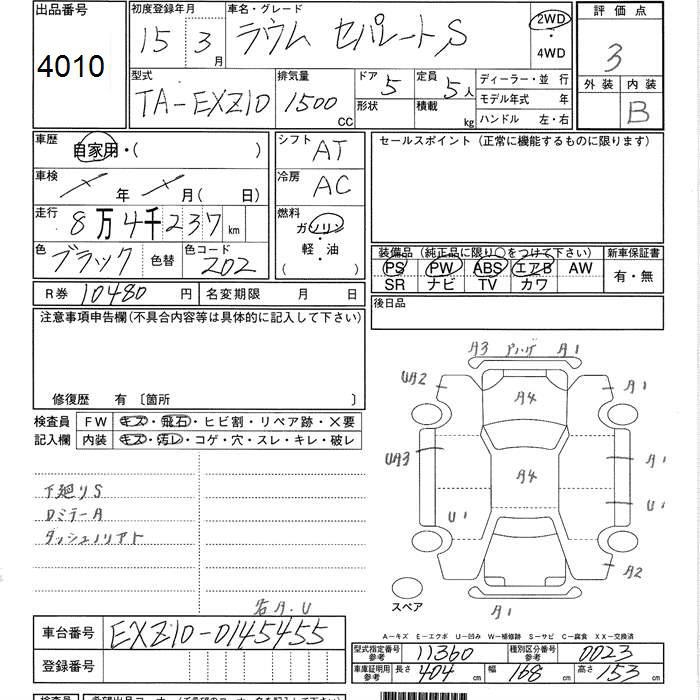 出品番号 4010
初度登録年月 15 3 月
車名・グレード ラウム セパレートS
2WD ・ 4WD
評価点 3
外装 内装 B
型式 TA-EXZ10
排気量 1500 CC
ドア 5 形状
定員 5人 積載 kg
ディーラー・並行
モデル年式 年
ハンドル 左・右
車歴 自家用・( )
車検 年 月( 日)
走行 8万4千237 km
色 ブラック 色替 色コード 202
シフト AT
冷房 AC
燃料 ガソリン・軽・油 ( )
セールスポイント (正常に機能するものに限ります)
装備品 (純正品に限り○をつけて下さい)
PS PW ABS エアB AW
SR ナビ TV カワ
新車保証書 有・無
後日品
R券 10480 円 名変期限 月 日
注意事項申告欄(不具合内容等は具体的に記入して下さい)
修復歴 有 〔箇所 〕
検査員記入欄
FW キズ・飛石・ヒビ割・リペア跡・×要
内装 キズ・汚レ・コゲ・穴・スレ・キレ・破レ
下廻りS
DミラーA
A3 A1
UA2 A4 A1
UA3 A4 A1
U1 U1
A2
スペア A1
右A.U
車台番号 EXZ10-0145455
登録番号
A-キズ E-エクボ U-凹み W-補修跡 S-サビ C-腐食 XX-交換済
型式指定番号 参考 11360 種別区分番号 参考 0023
車庫証明用 参考 長さ 404 cm 幅 168 cm 高さ 153 cm